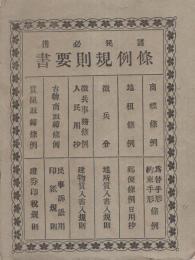 國民必携
條例規則要書
商標條例
地租條例
徵兵令
徵兵事務條例
人民用抄
古物商取締條例
質屋取締條例
爲替手形
約束手形條例
郵便條例日用抄
地所質入書入規則
建物質入書入規則
民事訴訟用
印紙規則
證券印稅規則